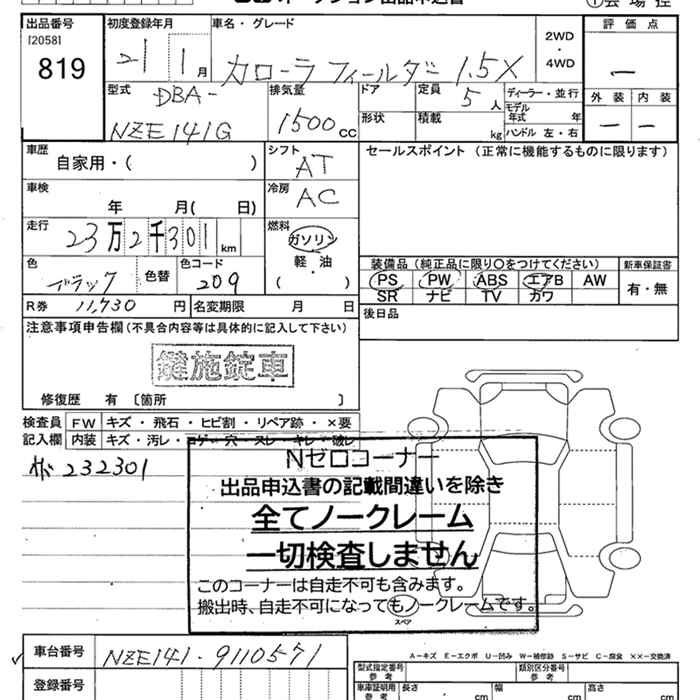 出品番号
[2058]
819
初度登録年月
21 1 月
車名・グレード
カローラフィールダー 1.5X
2WD
・
4WD
評価点
—
外装 内装
— —
型式
DBA-
NZE141G
排気量
1500 cc
ドア
形状
定員 5 人
積載 kg
ディーラー・並行
モデル
年式 年
ハンドル 左・右
車歴
自家用・( )
シフト
AT
セールスポイント (正常に機能するものに限ります)
車検
年 月( 日)
冷房
AC
走行
23万2千301 km
燃料
ガソリン
軽・油
( )
色
ブラック
色替
色コード
209
装備品 (純正品に限り○をつけてください)
PS PW ABS エアB AW
SR ナビ TV カワ
新車保証書
有・無
R券 11,730 円
名変期限 月 日
後日品
注意事項申告欄(不具合内容等は具体的に記入して下さい)
鍵施錠車
修復歴 有 〔箇所 〕
検査員
記入欄
FW キズ・飛石・ヒビ割・リペア跡・×要
内装 キズ・汚レ・コゲ・穴・スレ・キレ・破レ
232301
Nゼロコーナー
出品申込書の記載間違いを除き
全てノークレーム
一切検査しません
このコーナーは自走不可も含みます。
搬出時、自走不可になってもノークレームです。
スペア
A−キズ E−エクボ U−凹み W−補修跡 S−サビ C−腐食 ××−交換済
車台番号
NZE141-9110571
登録番号
型式指定番号
参考
類別区分番号
参考
車庫証明用
参考
長さ cm
幅 cm
高さ cm